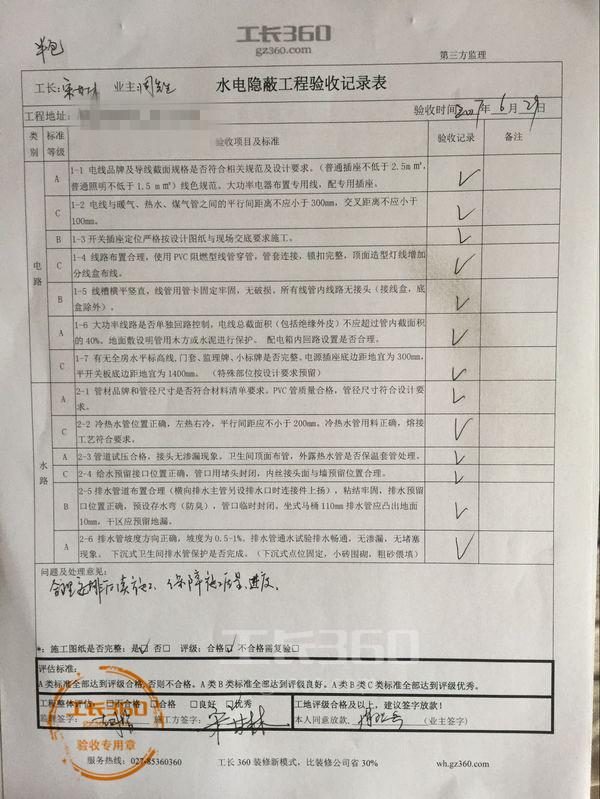 工长360
gz360.com
半包
第三方监理
工长: 业主:周先生 水电隐蔽工程验收记录表
工程地址: 验收时间2017年6月29日
类别 标准等级 验收项目及标准 验收记录 备注
电路
A 1-1 电线品牌及导线截面规格是否符合相关规范及设计要求。(普通插座不低于2.5m㎡,
普通照明不低于1.5 m㎡)线色规范。大功率电器布置专用线,配专用插座。
C 1-2 电线与暖气、热水、煤气管之间的平行间距离不应小于300mm,交叉距离不应小于
100mm。
B 1-3 开关插座定位严格按设计图纸与现场交底要求施工。
C 1-4 线路布置合理,使用PVC阻燃型线管穿管,管套连接,锁扣完整,顶面造型灯线增加
分线盒布线。
B 1-5 线槽横平竖直,线管用管卡固定牢固,无破损。所有线管内线路无接头(接线盒,底
盒除外)。
A 1-6 大功率线路是否单独回路控制,电线总截面积(包括绝缘外皮)不应超过管内截面积
的40%。地面敷设明管用木方或水泥进行保护。 配电箱内回路设置是否合理。
C 1-7 有无全房水平标高线,门套、监理牌、小标牌是否完整。电源插座底边距地宜为300mm,
平开关板底边距地宜为1400mm。 (特殊部位按设计要求预留)
水路
A 2-1 管材品牌和管径尺寸是否符合材料清单要求。PVC管质量合格,管径尺寸符合设计要
求。
C 2-2 冷热水管位置正确,左热右冷,平行间距应不小于200mm。冷热水管用料正确,熔接
工艺符合要求。
A 2-3 管道试压合格,接头无渗漏现象。卫生间顶面布管,外露热水管是否保温套管处理。
C 2-4 给水预留接口位置正确,管口用堵头封闭,内丝接头面与墙预留位置合理。
B 2-5 排水管道布置合理(横向排水主管另设排水口时连接件上扬),粘结牢固,排水预留
口位置正确,预设存水弯(防臭),管口临时封闭。坐式马桶110mm排水管应凸出地面
10mm,干区应预留地漏。
A 2-6 排水管坡度方向正确,坡度为0.5-1%。排水管通水试验排水畅通,无渗漏,无堵塞
现象。 下沉式卫生间排水管保护是否完成。(下沉式点位固定,小砖围砌,粗砂偎填)
问题及处理意见:
合理安排后续施工、保障施工质量、进度。
*: 施工图纸是否完整: 是☑ 否□ 评级: 合格☑ 不合格需复验□
工长360
评估标准:
A类标准全部达到评级合格,否则不合格。A类B类标准全部达到评级良好。A类B类C类标准全部达到评级优秀。
工程整体评估: □不合格 □合格 □良好 ☑优秀 工地评级合格及以上,建议签字放款!
监理签字: 施工方签字: 本人同意放款, (业主签字)
工长360
验收专用章
服务热线: 027-85360360 工长360装修新模式,比装修公司省30% wh.gz360.com